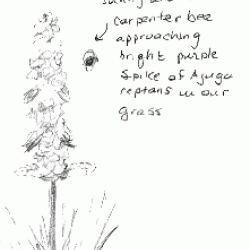 carpenter bee
approaching
bright purple
spike of Ajuga
reptans in our
grass